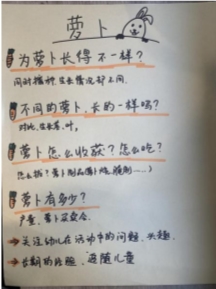 萝卜
为萝卜长得不一样？
同时播种,生长情况却不同.
不同的萝卜,长的一样吗？
对比,生长茎,叶,
萝卜怎么收获？怎么吃？
怎么拔？萝卜制品
萝卜有多少？
产量、萝卜买卖会.
→关注幼儿在活动中的问题、兴趣.
→长期的经验、追随儿童